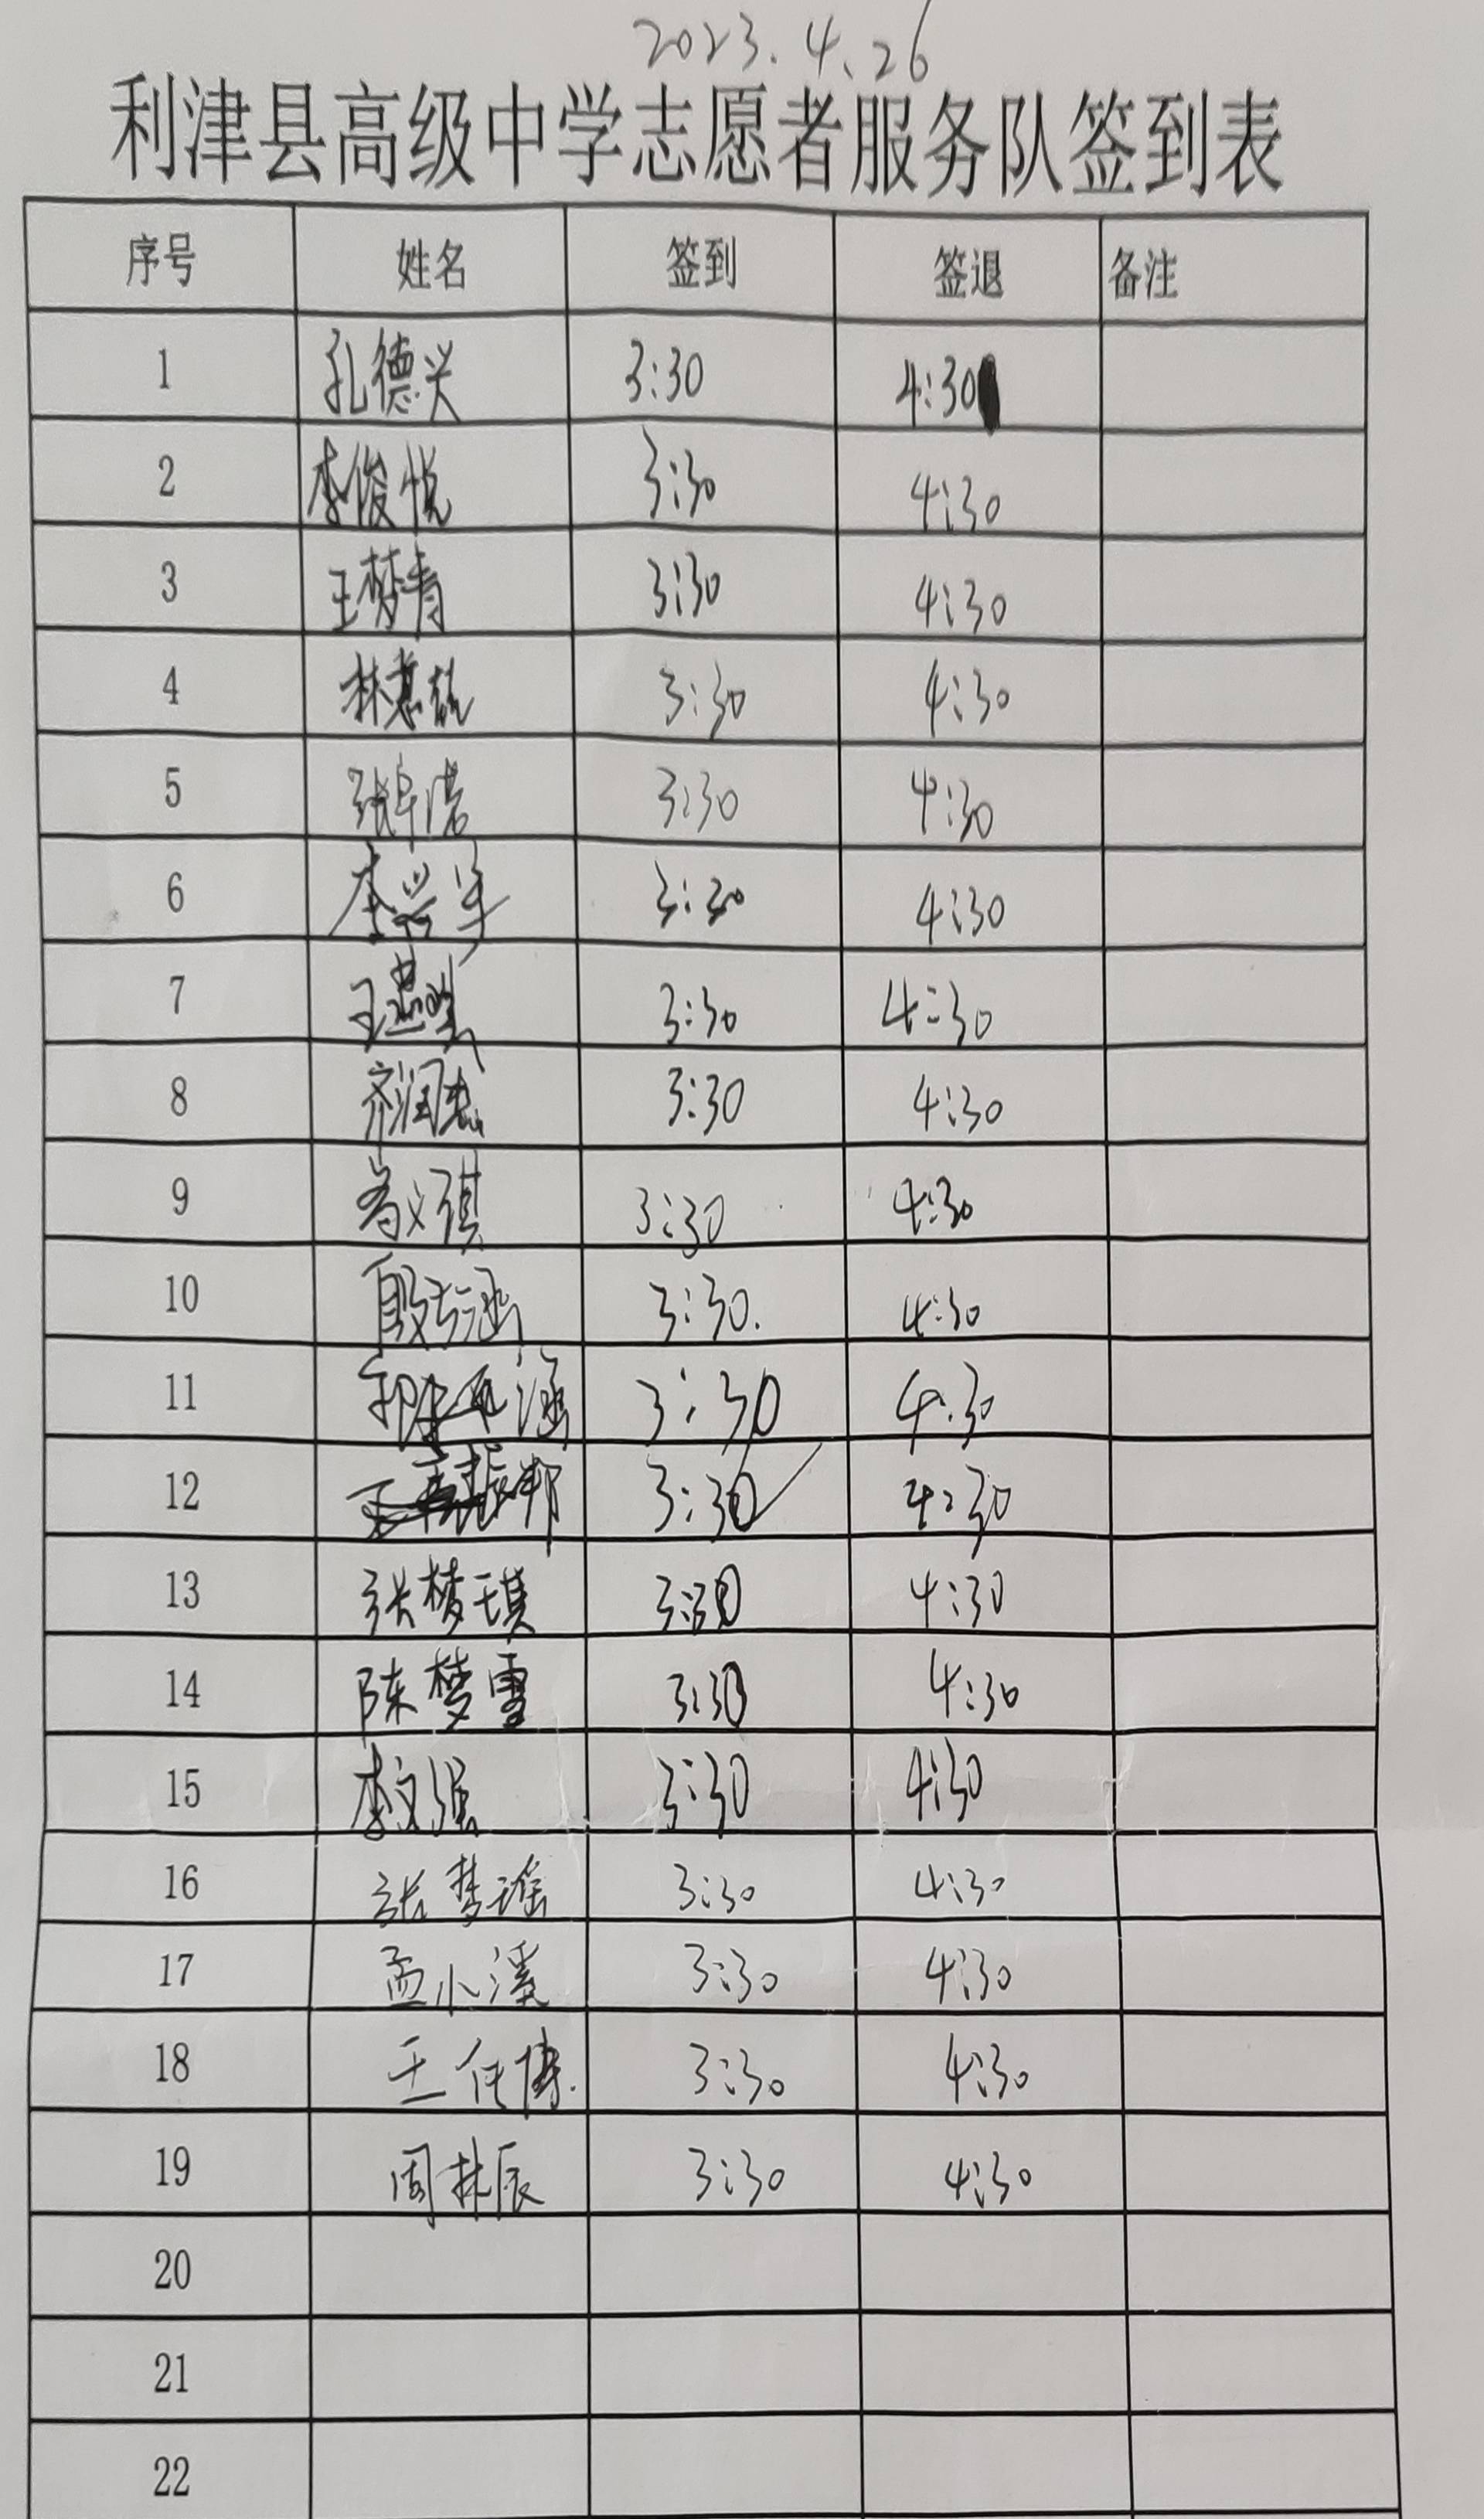 2023.4.26
利津县高级中学志愿者服务队签到表
序号 姓名 签到 签退 备注
1 孔德兴 3:30 4:30
2 李俊悦 3:30 4:30
3 王梦青 3:30 4:30
4 林 3:30 4:30
5 张 浩 3:30 4:30
6 李兴 3:30 4:30
7 王 3:30 4:30
8 齐润 3:30 4:30
9 琪 3:30 4:30
10 殷 涵 3:30. 4:30
11 涵 3:30 4:30
12 王 振邦 3:30 4:30
13 张梦琪 3:30 4:30
14 陈梦雪 3:30 4:30
15 李文强 3:30 4:30
16 张梦瑶 3:30 4:30
17 孟小溪 3:30 4:30
18 王任博. 3:30 4:30
19 周林辰 3:30 4:30
20
21
22